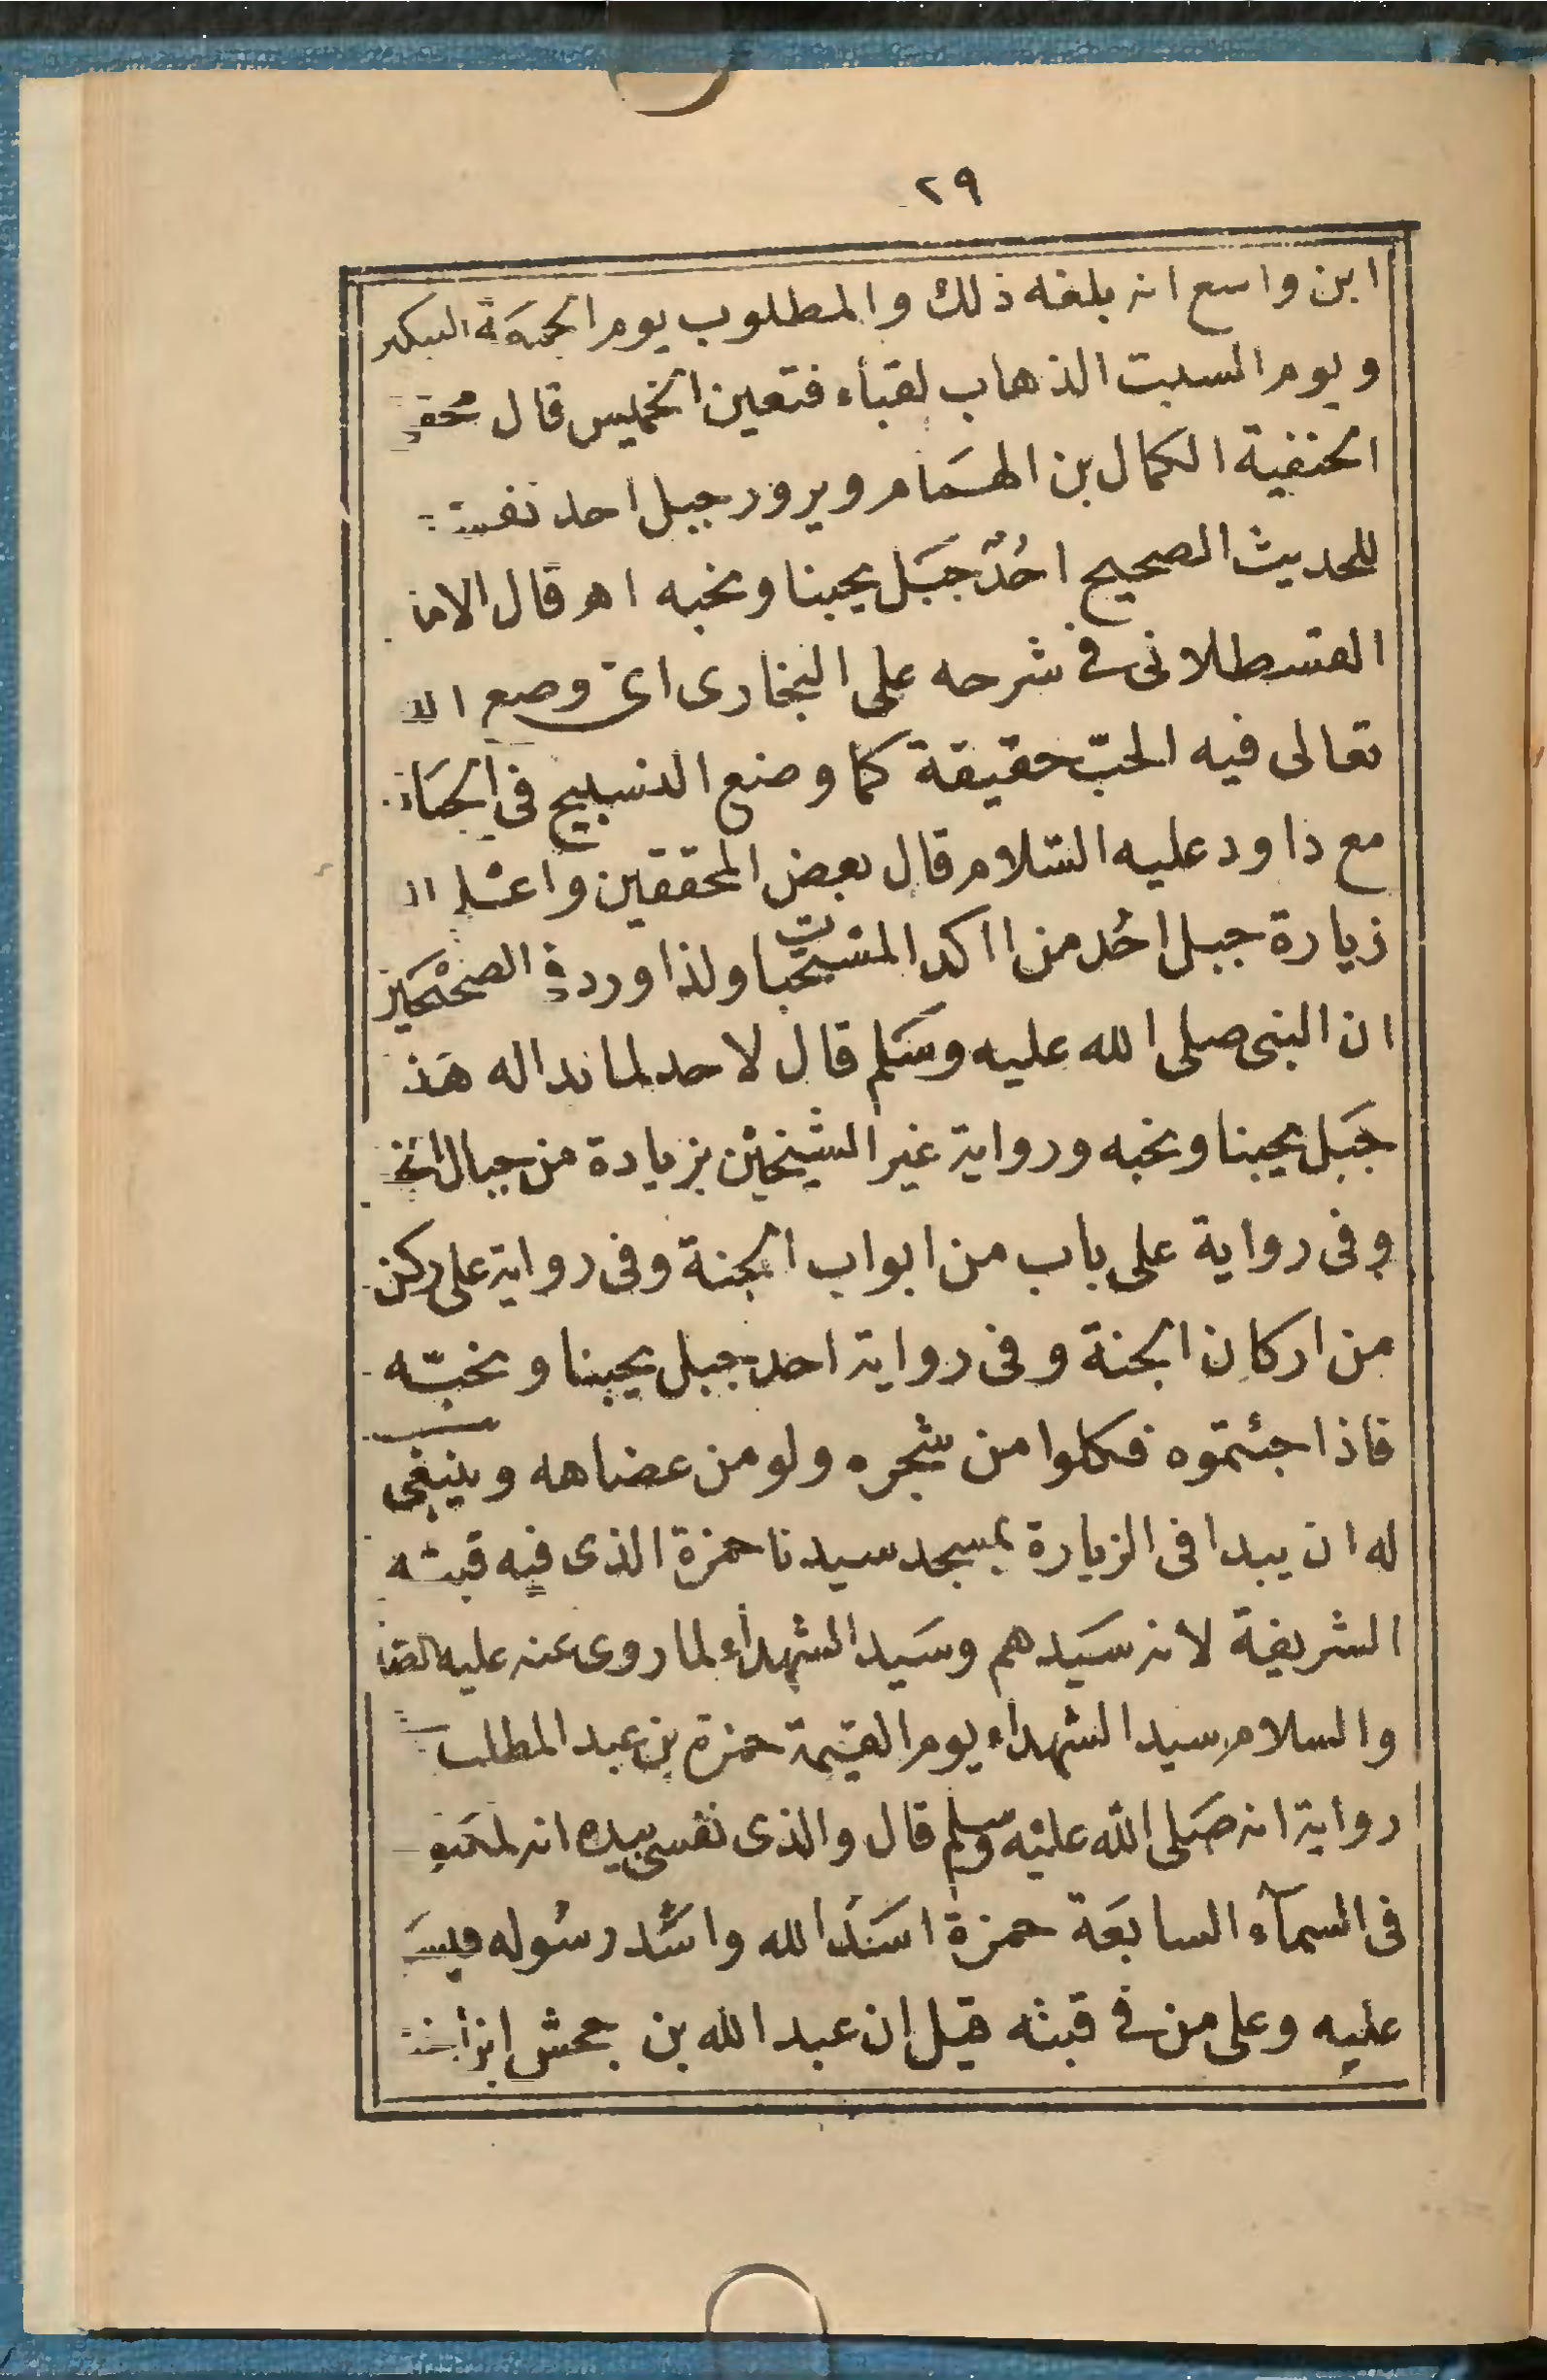 ٢٩
ابن واسع انه بلغه ذلك والمطلوب يوم الجمعة التبكير
ويوم السبت الذهاب لقباء فتعين الخميس قال محقق
الحنفية الكمال بن الهمام ويزور جبل احد نفسه
للحديث الصحيح احُدٌ جبَل يحبنا ونحبه اهـ قال الامام
القسطلانى فى شرحه على البخارى اى وضع الله
تعالى فيه الحبّ حقيقة كما وضع التسبيح فى الجبال
مع داود عليه السّلام قال بعض المحققين واعلم ان
زيارة جبل احُد من اأكد المستحبات ولذا ورد فى الصحيحين
ان النبى صلى الله عليه وسَلم قال لاحد لما بدا له هَذا
جبَل يحبنا ونحبه ورواية غير الشيخين بزيادة من جبال الجنة
وفى رواية على باب من ابواب الجنة وفى رواية على ركن
من اركان الجنة وفى رواية احد جبل يحبنا ونحبّه
فاذا جئتموه فكلوا من شجره ولو من عضاهه وينبغى
له ان يبدا فى الزيارة بمسجد سيدنا حمزة الذى فيه قبته
الشريفة لانه سَيدهم وسَيد الشهداء لما روى عنه عليه الصلاة
والسلام سيد الشهداء يوم القيمة حمزة بن عبد المطلب
رواية انه صَلى الله عليْه وسلم قال والذى نفسى بيده انه لمكتوب
فى السمآء السابعَة حمزة اسَدُ الله واسَد رسُوله فيسَلم
عليه وعلى من فى قبته قيل ان عبد الله بن جحش ابن اخت